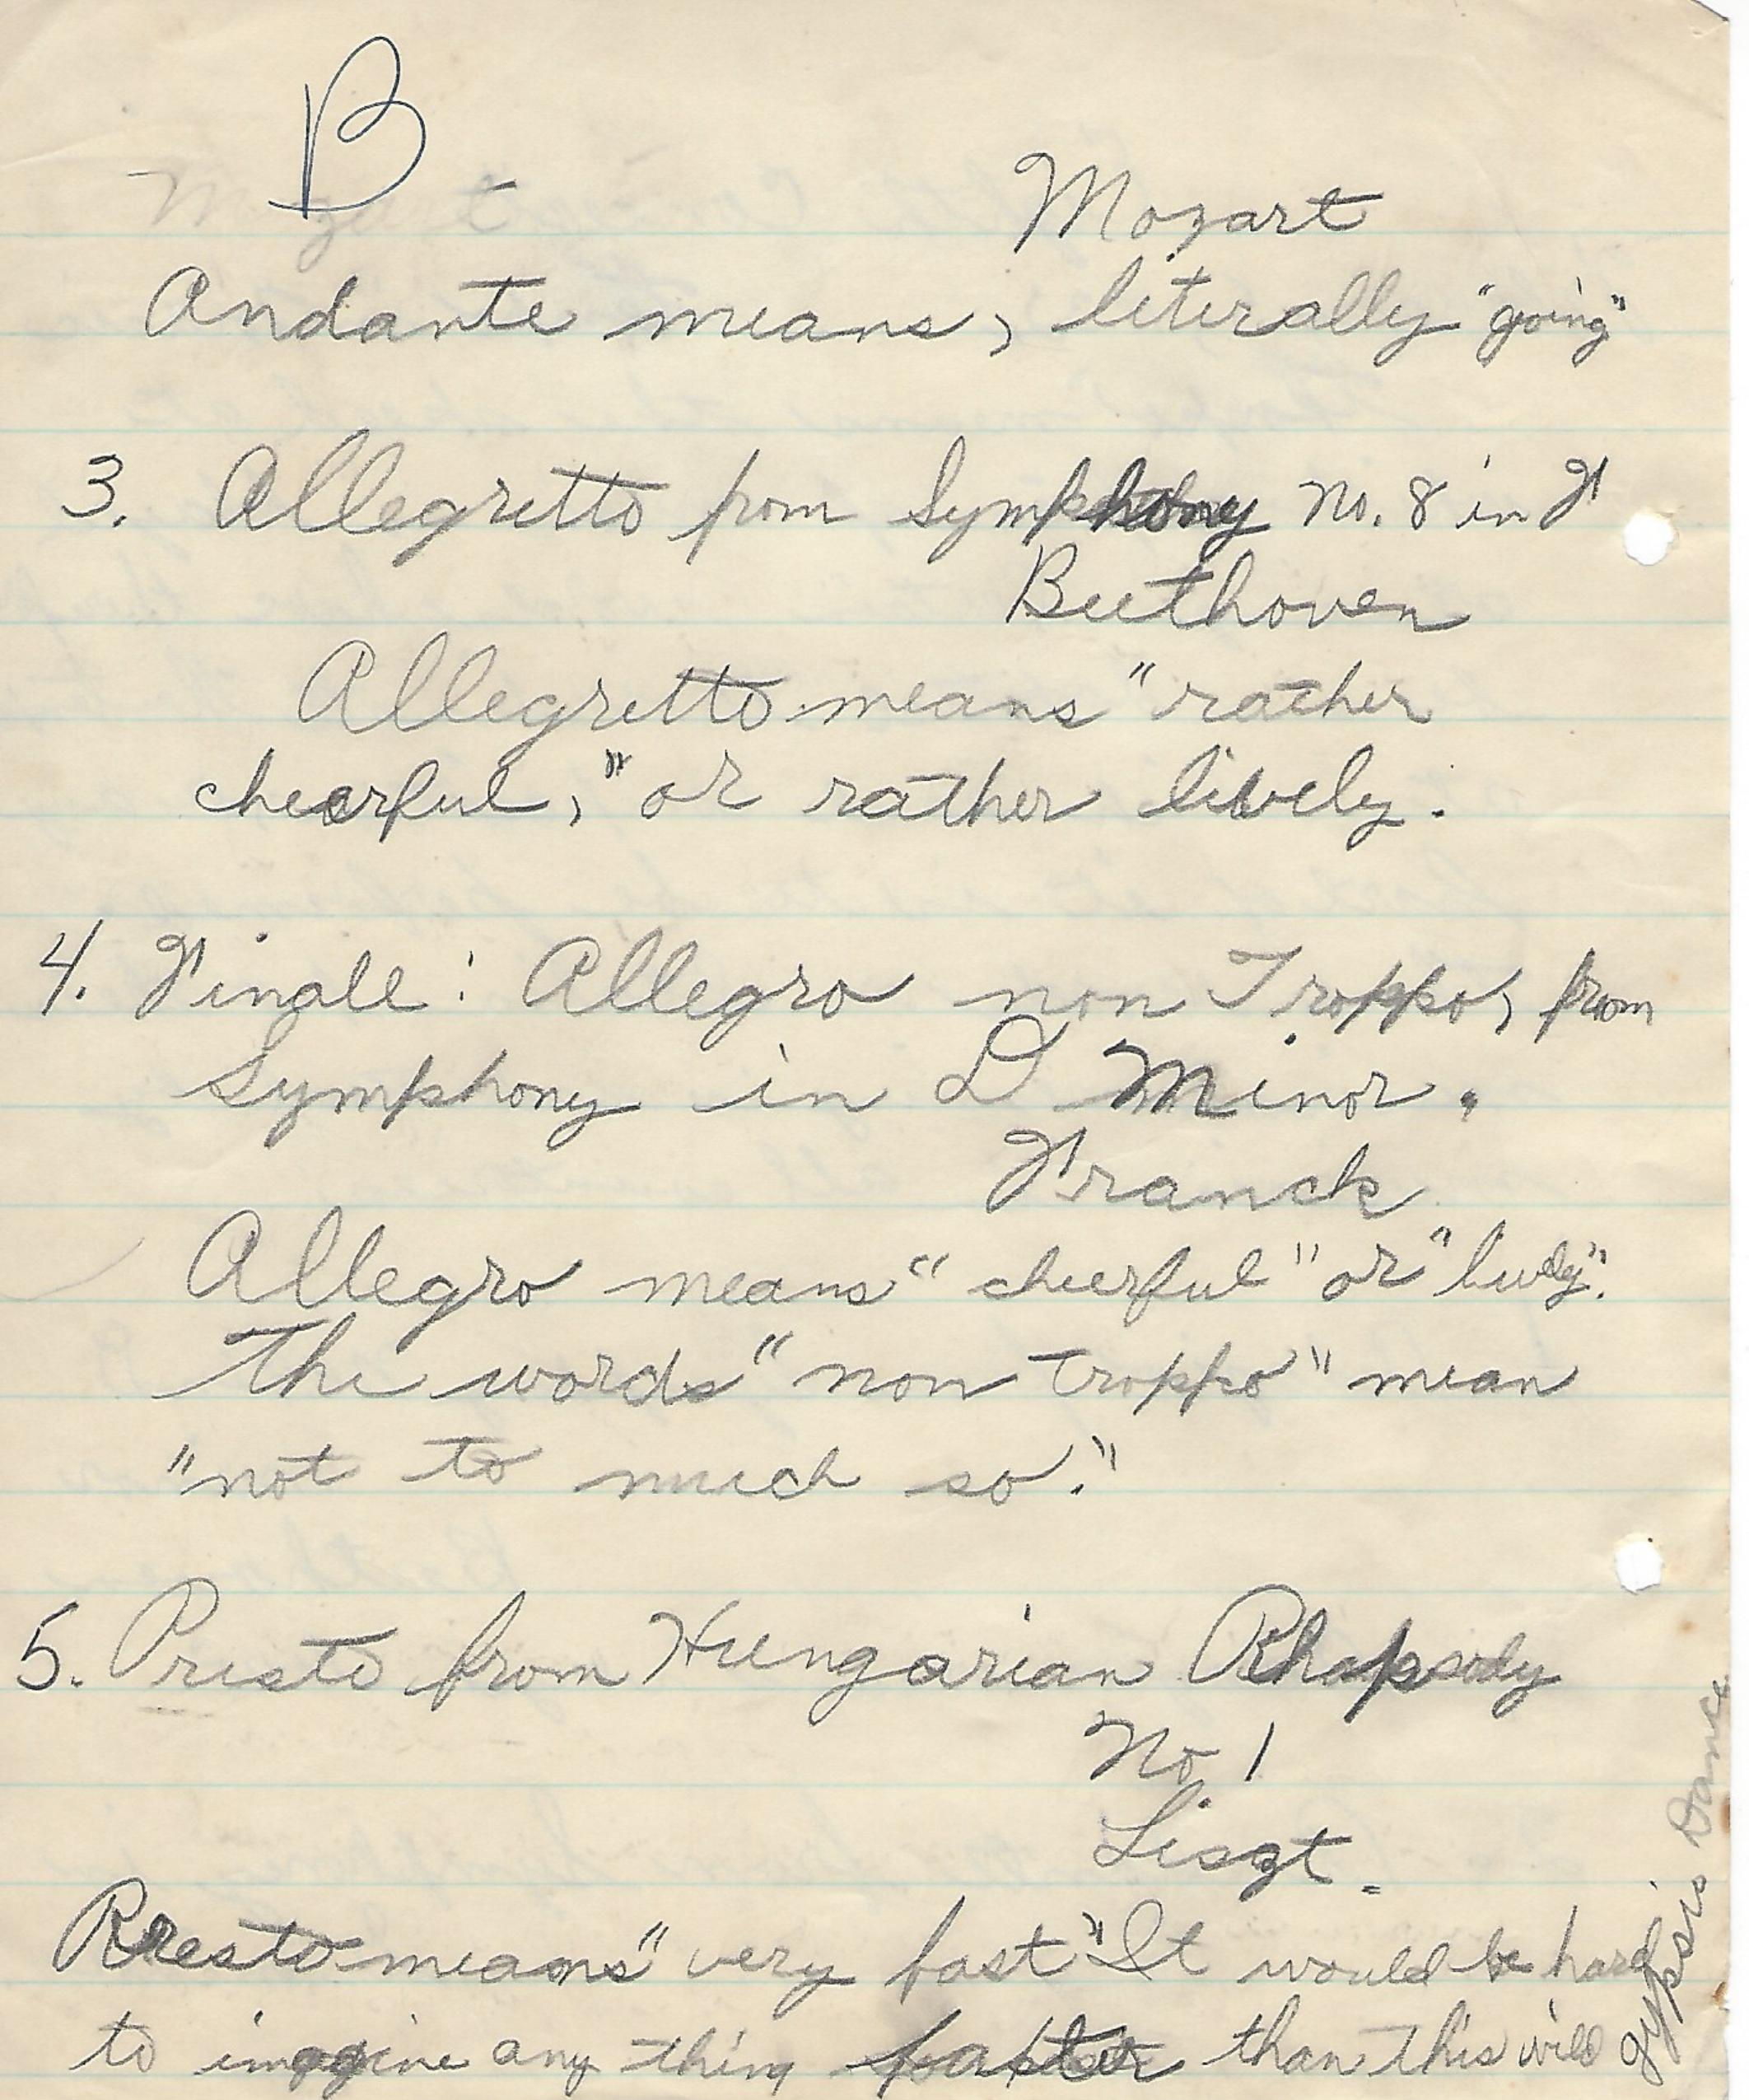 B
Mozart
Andante means, literally "going"
3. Allegretto from Symphony No. 8 in F
Beethoven
Allegretto means "rather
cheerful," or rather lively.
4. Finale: Allegro non Troppo, from
Symphony in D Minor.
Franck
Allegro means "cheerful" or "lively".
The words "non troppo" mean
"not to much so."
5. Presto from Hungarian Rhapsody
No. 1
Liszt.
Presto means "very fast" It would be hard
to imagine any thing faster than this wild
gypsis Dance